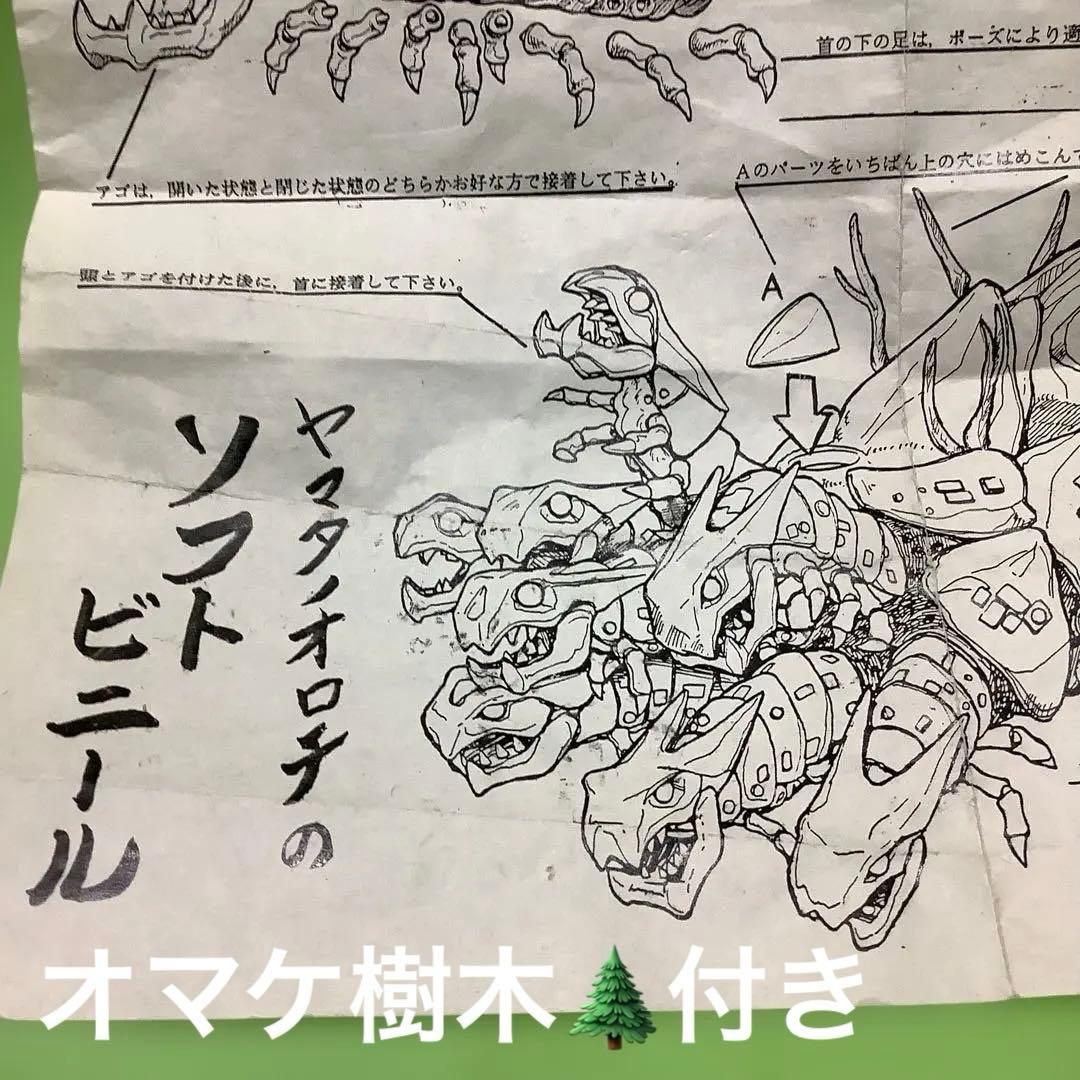 首の下の足は，ポーズにより適
アゴは，開いた状態と閉じた状態のどちらかお好な方で接着して下さい。
Aのパーツをいちばん上の穴にはめこんで
頭とアゴを付けた後に，首に接着して下さい。
A
ヤマタノオロチの
ソフト
ビニール
オマケ樹木🌲付き